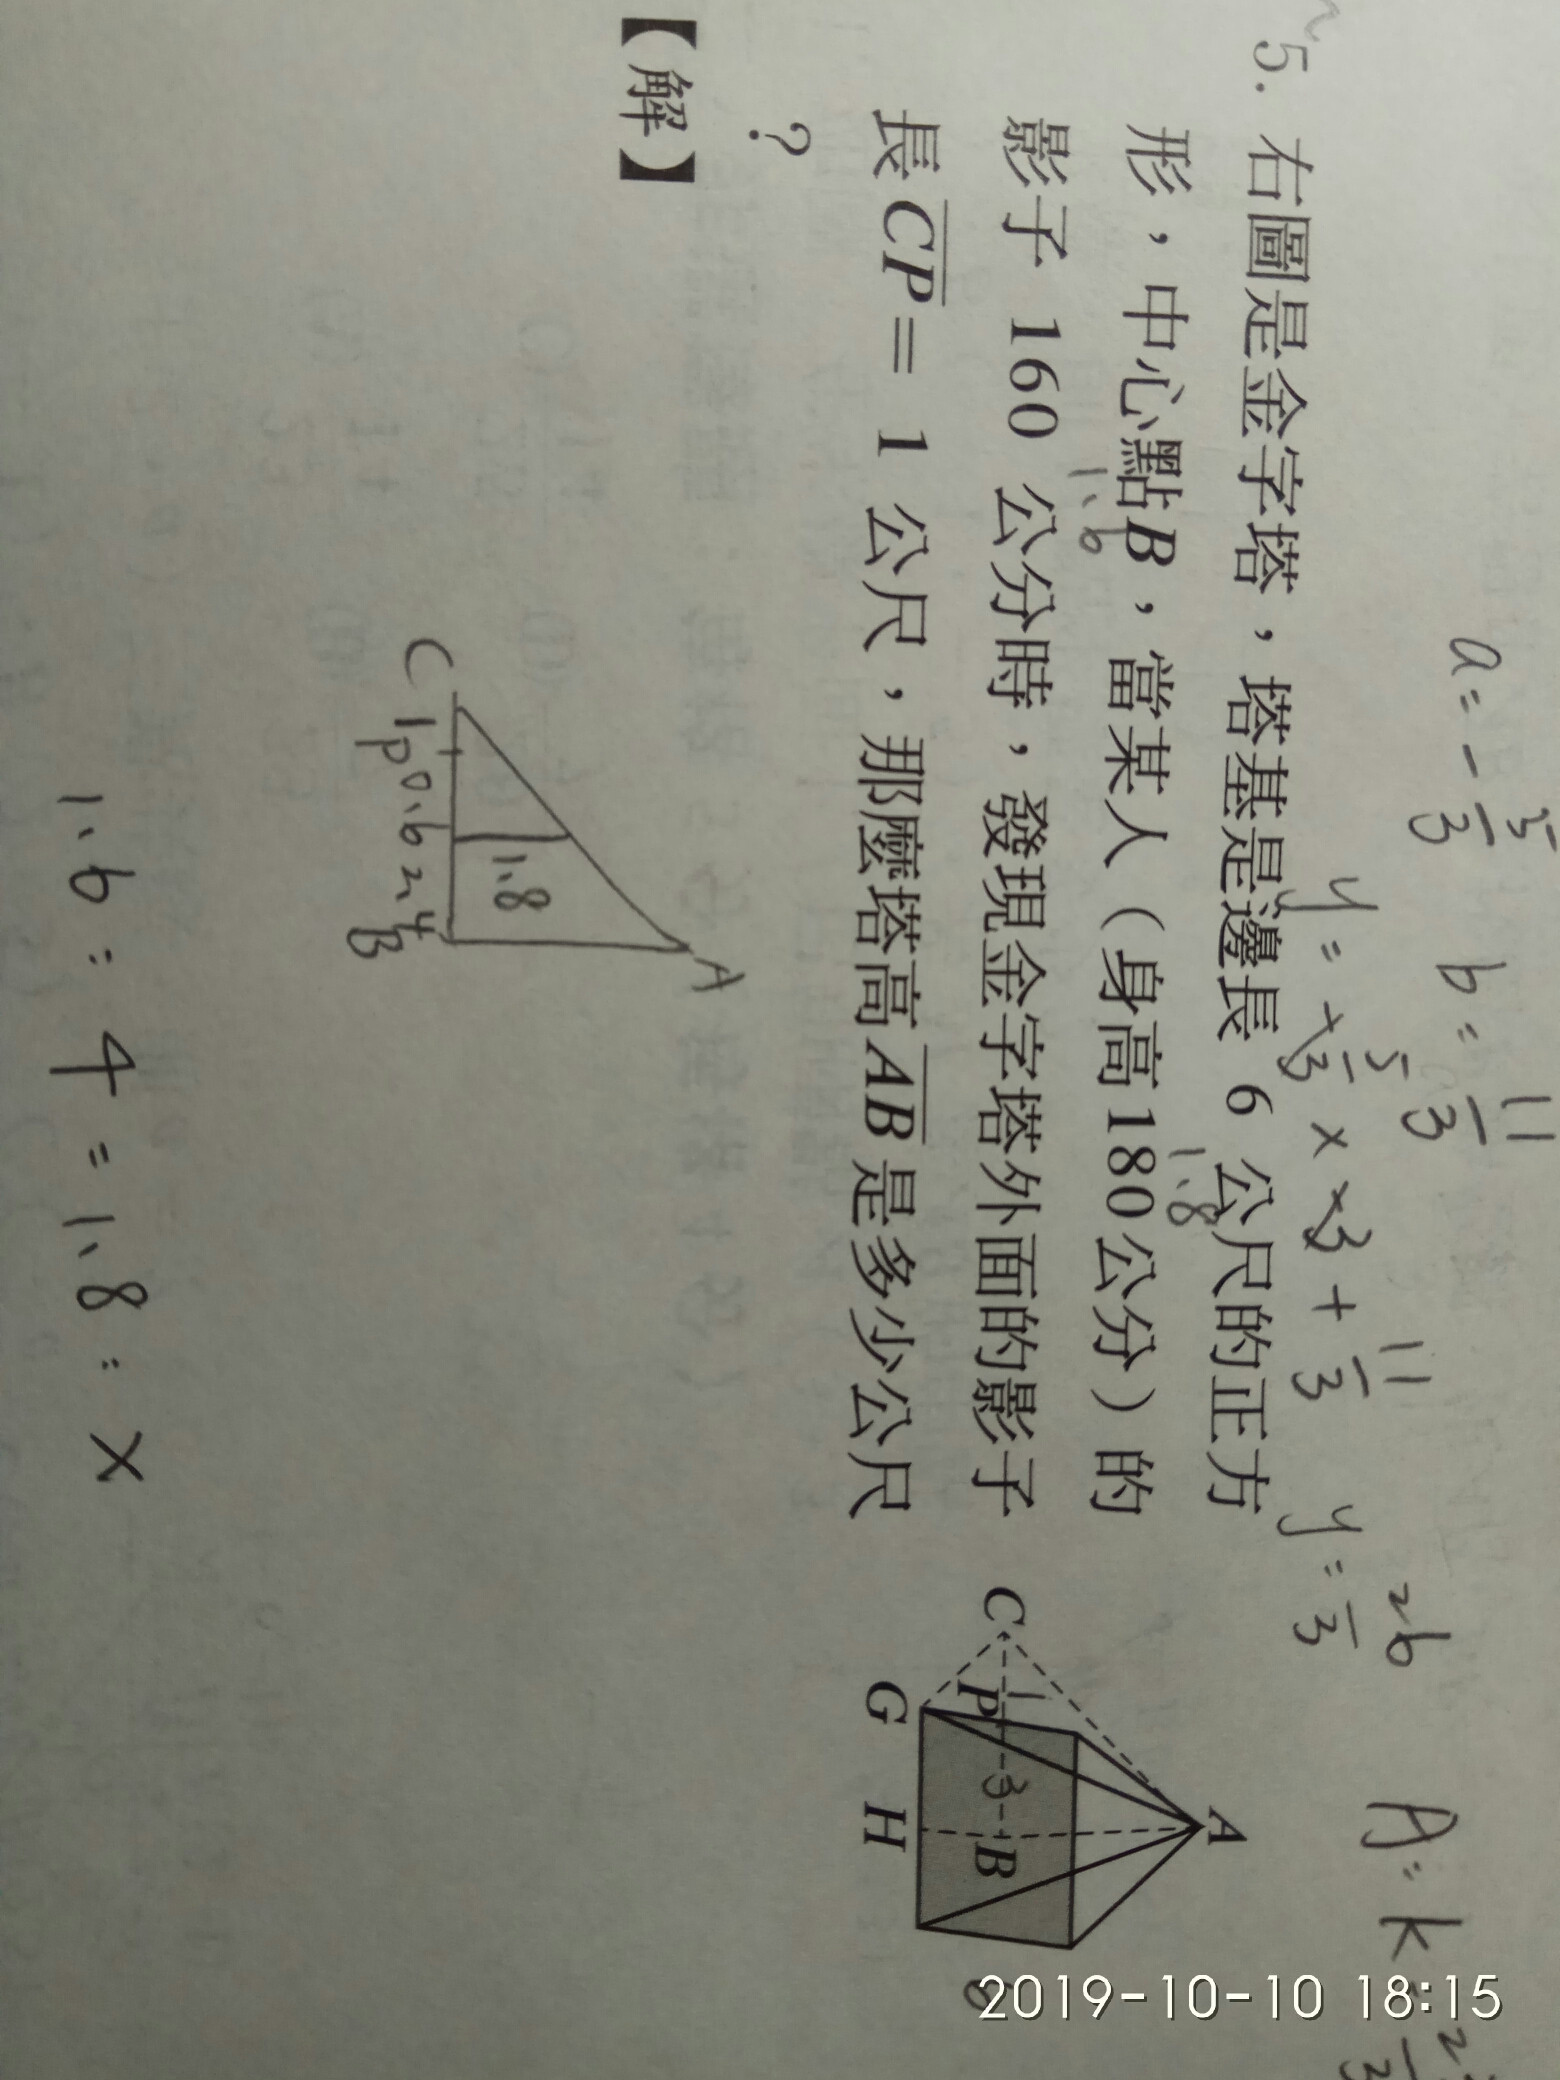 a = - 5/3   b = 11/3
y = x 5/3 × x3 + 11/3   y = 26/3   A = k
5. 右圖是金字塔，塔基是邊長 6 公尺的正方
1.8
形，中心點B，當某人（身高180公分）的
1.6
影子 160 公分時，發現金字塔外面的影子
長CP = 1 公尺，那麼塔高AB是多少公尺
？
【解】
A
C
P
1
3
B
G
H
6
A
1.8
C 1 P 0.6 2.4 B
1.6 : 4 = 1.8 : x
2019-10-10 18:15